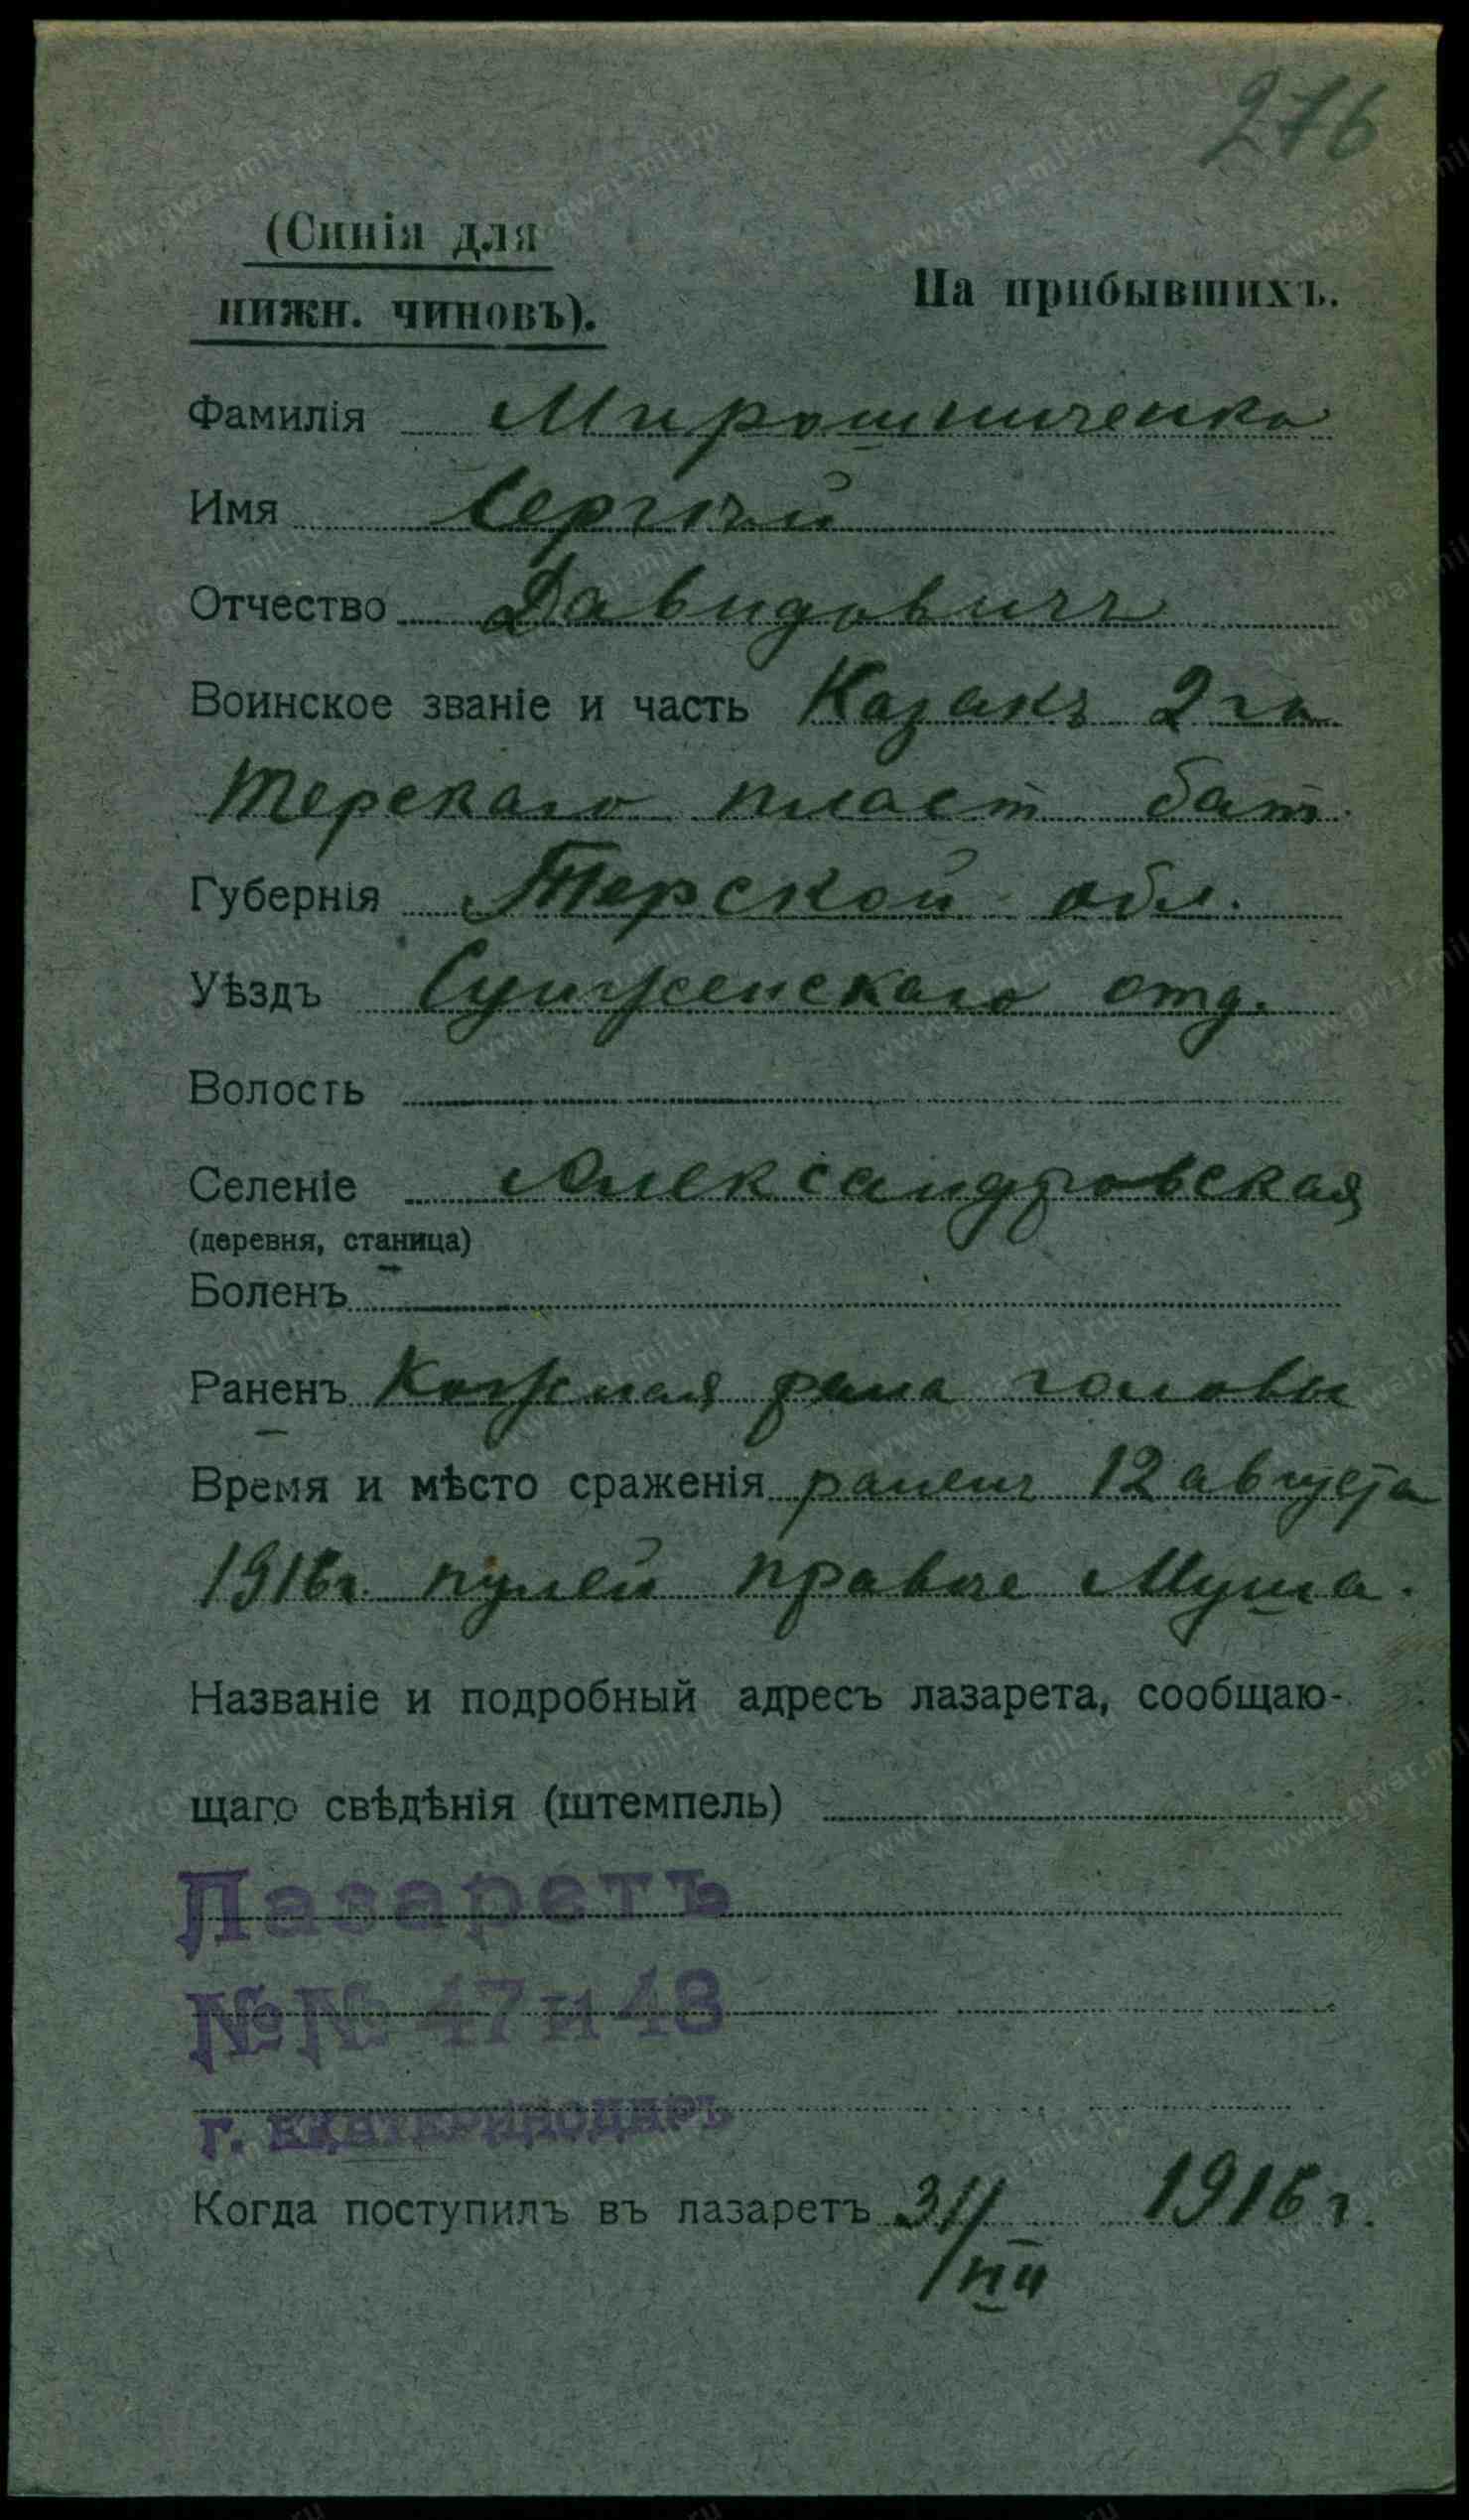 276
(Синія для
нижн. чиновъ).
На прибывшихъ.
Фамилія Мирошниченко
Имя Сергѣй
Отчество Давидовичъ
Воинское званіе и часть Казакъ 2 го
Терскаго пласт бат.
Губернія Терской обл.
Уѣздъ Сунженскаго отд.
Волость
Селеніе Александровская
(деревня, станица)
Боленъ
Раненъ Кожная рана головы
Время и мѣсто сраженія раненъ 12 августа
1916 г. пулей правѣе Муша.
Названіе и подробный адресъ лазарета, сообщаю-
щаго свѣдѣнія (штемпель)
Лазаретъ
№№ 47 и 48
г. ЕКАТЕРИНОДАРЪ
Когда поступилъ въ лазаретъ 31/VIII 1916 г.